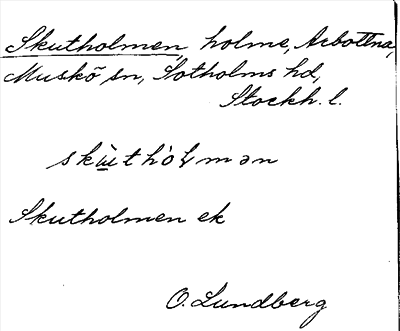 Skutholmen, holme, Arbottna,
Muskö sn, Sotholms hd,
Stockh. l.
skùthòlmən
Skutholmen ek
O. Lundberg